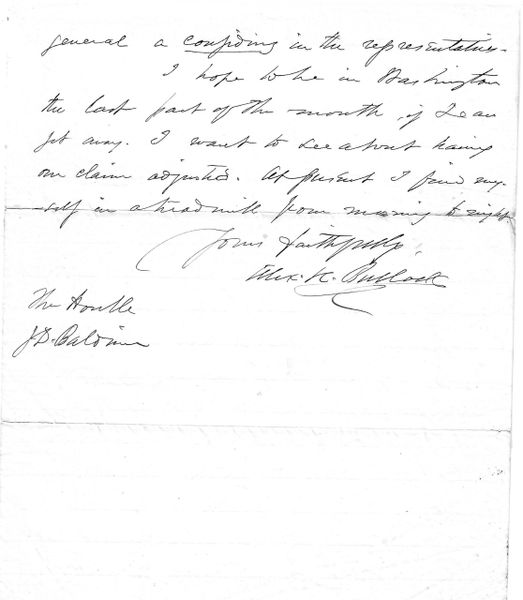 general a confiding in the representatives.
I hope to be in Washington
the last part of the month, if I can
get away. I want to see about having
our claim adjusted. At present I find my-
-self in a treadmill from morning to night.
Yours faithfully,
Alex. H. Bullock
The Honble
J.D. Baldwin